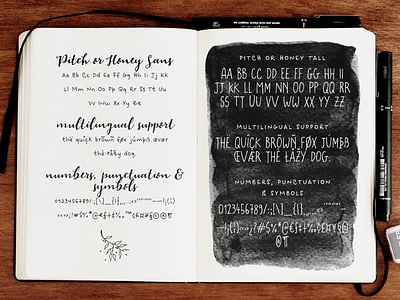 Pitch or Honey Sans
Aa Bb Cc Dd Ee Ff Gg Hh Ii Jj Kk
Ll Mm Nn Oo Pp Qq Rr Ss Tt Uu
Vv Ww Xx Yy Zz
multilingual support
thé quíçk bröwñ føx júmþß œvær
thè łåzy dog.
numbers, punctuation &
symbols
0123456789/:;[\]_{|}
PITCH OR HONEY TALL
AA BB CC DD EE FF GG HH II JJ
KK LL MM NN OO PP QQ RR
SS TT UU VV WW XX YY ZZ
MULTILINGUAL SUPPORT
THÉ QUÍÇK BRÖWÑ FØX JÚMÞß
ŒVÆR THÈ ŁÅZY DOG.
NUMBERS, PUNCTUATION
& SYMBOLS
0123456789/:;[\]_{|}